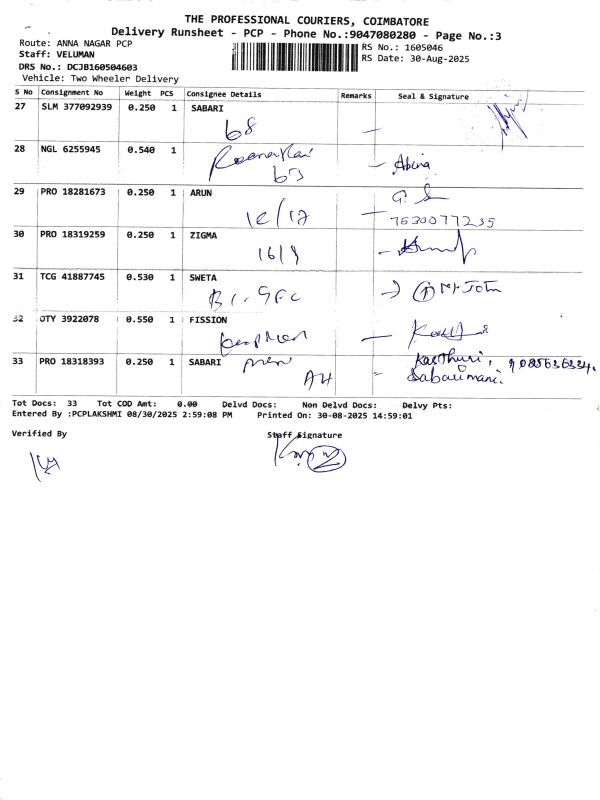 THE PROFESSIONAL COURIERS, COIMBATORE
Delivery Runsheet - PCP - Phone No.:9047080280 - Page No.:3
Route: ANNA NAGAR PCP
Staff: VELUMAN
DRS No.: DCJB160504603
Vehicle: Two Wheeler Delivery
RS No.: 1605046
RS Date: 30-Aug-2025
S No Consignment No Weight PCS Consignee Details Remarks Seal & Signature
27 SLM 377092939 0.250 1 SABARI
68
28 NGL 6255945 0.540 1
63
29 PRO 18281673 0.250 1 ARUN
7530077235
30 PRO 18319259 0.250 1 ZIGMA
16/9
31 TCG 41887745 0.530 1 SWETA
Mr John
32 OTY 3922078 0.550 1 FISSION
33 PRO 18318393 0.250 1 SABARI
Kasthuri,
AH Sabarimani.
Tot Docs: 33 Tot COD Amt: 0.00 Delvd Docs: Non Delvd Docs: Delvy Pts:
Entered By :PCPLAKSHMI 08/30/2025 2:59:08 PM Printed On: 30-08-2025 14:59:01
Verified By Staff Signature